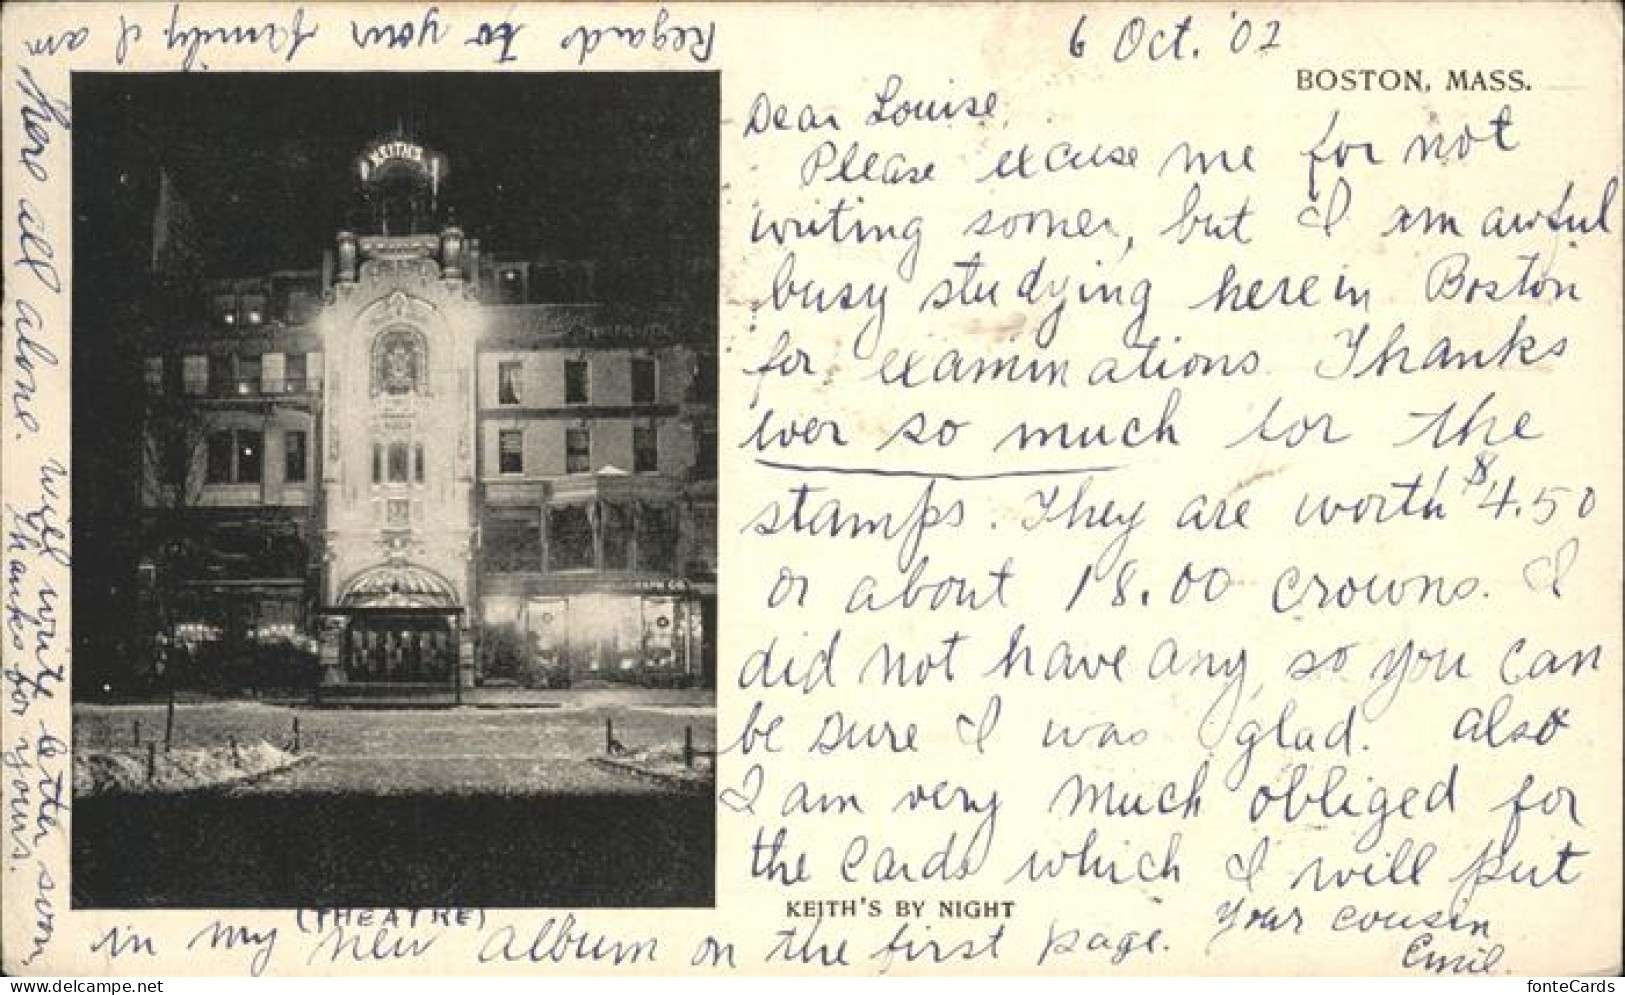 6 Oct. '02
BOSTON, MASS.
Dear Louise,
Please excuse me for not
writing sooner, but I am awful
busy studying here in Boston
for examinations. Thanks
ever so much for the
stamps. They are worth $4.50
or about 18.00 crowns. I
did not have any, so you can
be sure I was glad. also
I am very much obliged for
the cards which I will put
in my new album on the first page.
Your cousin
Emil.
Regards to your family, I am
here all alone. Will write letter soon.
Thanks for yours.
KEITH'S
KEITH'S BY NIGHT
(THEATRE)
hippostcard.com
fonteCards